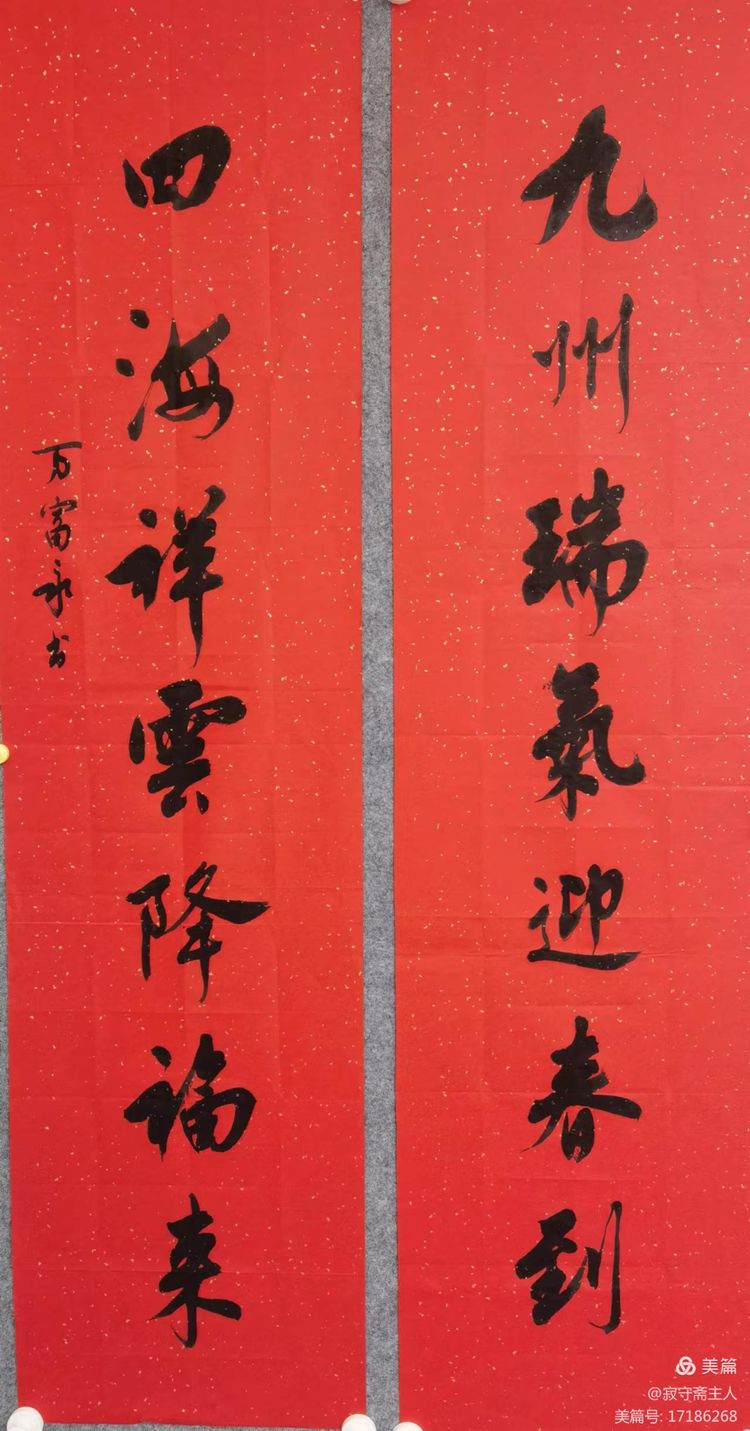 九州瑞氣迎春到
四海祥雲降福来
万富永书
美篇
@寂守斋主人
美篇号: 17186268